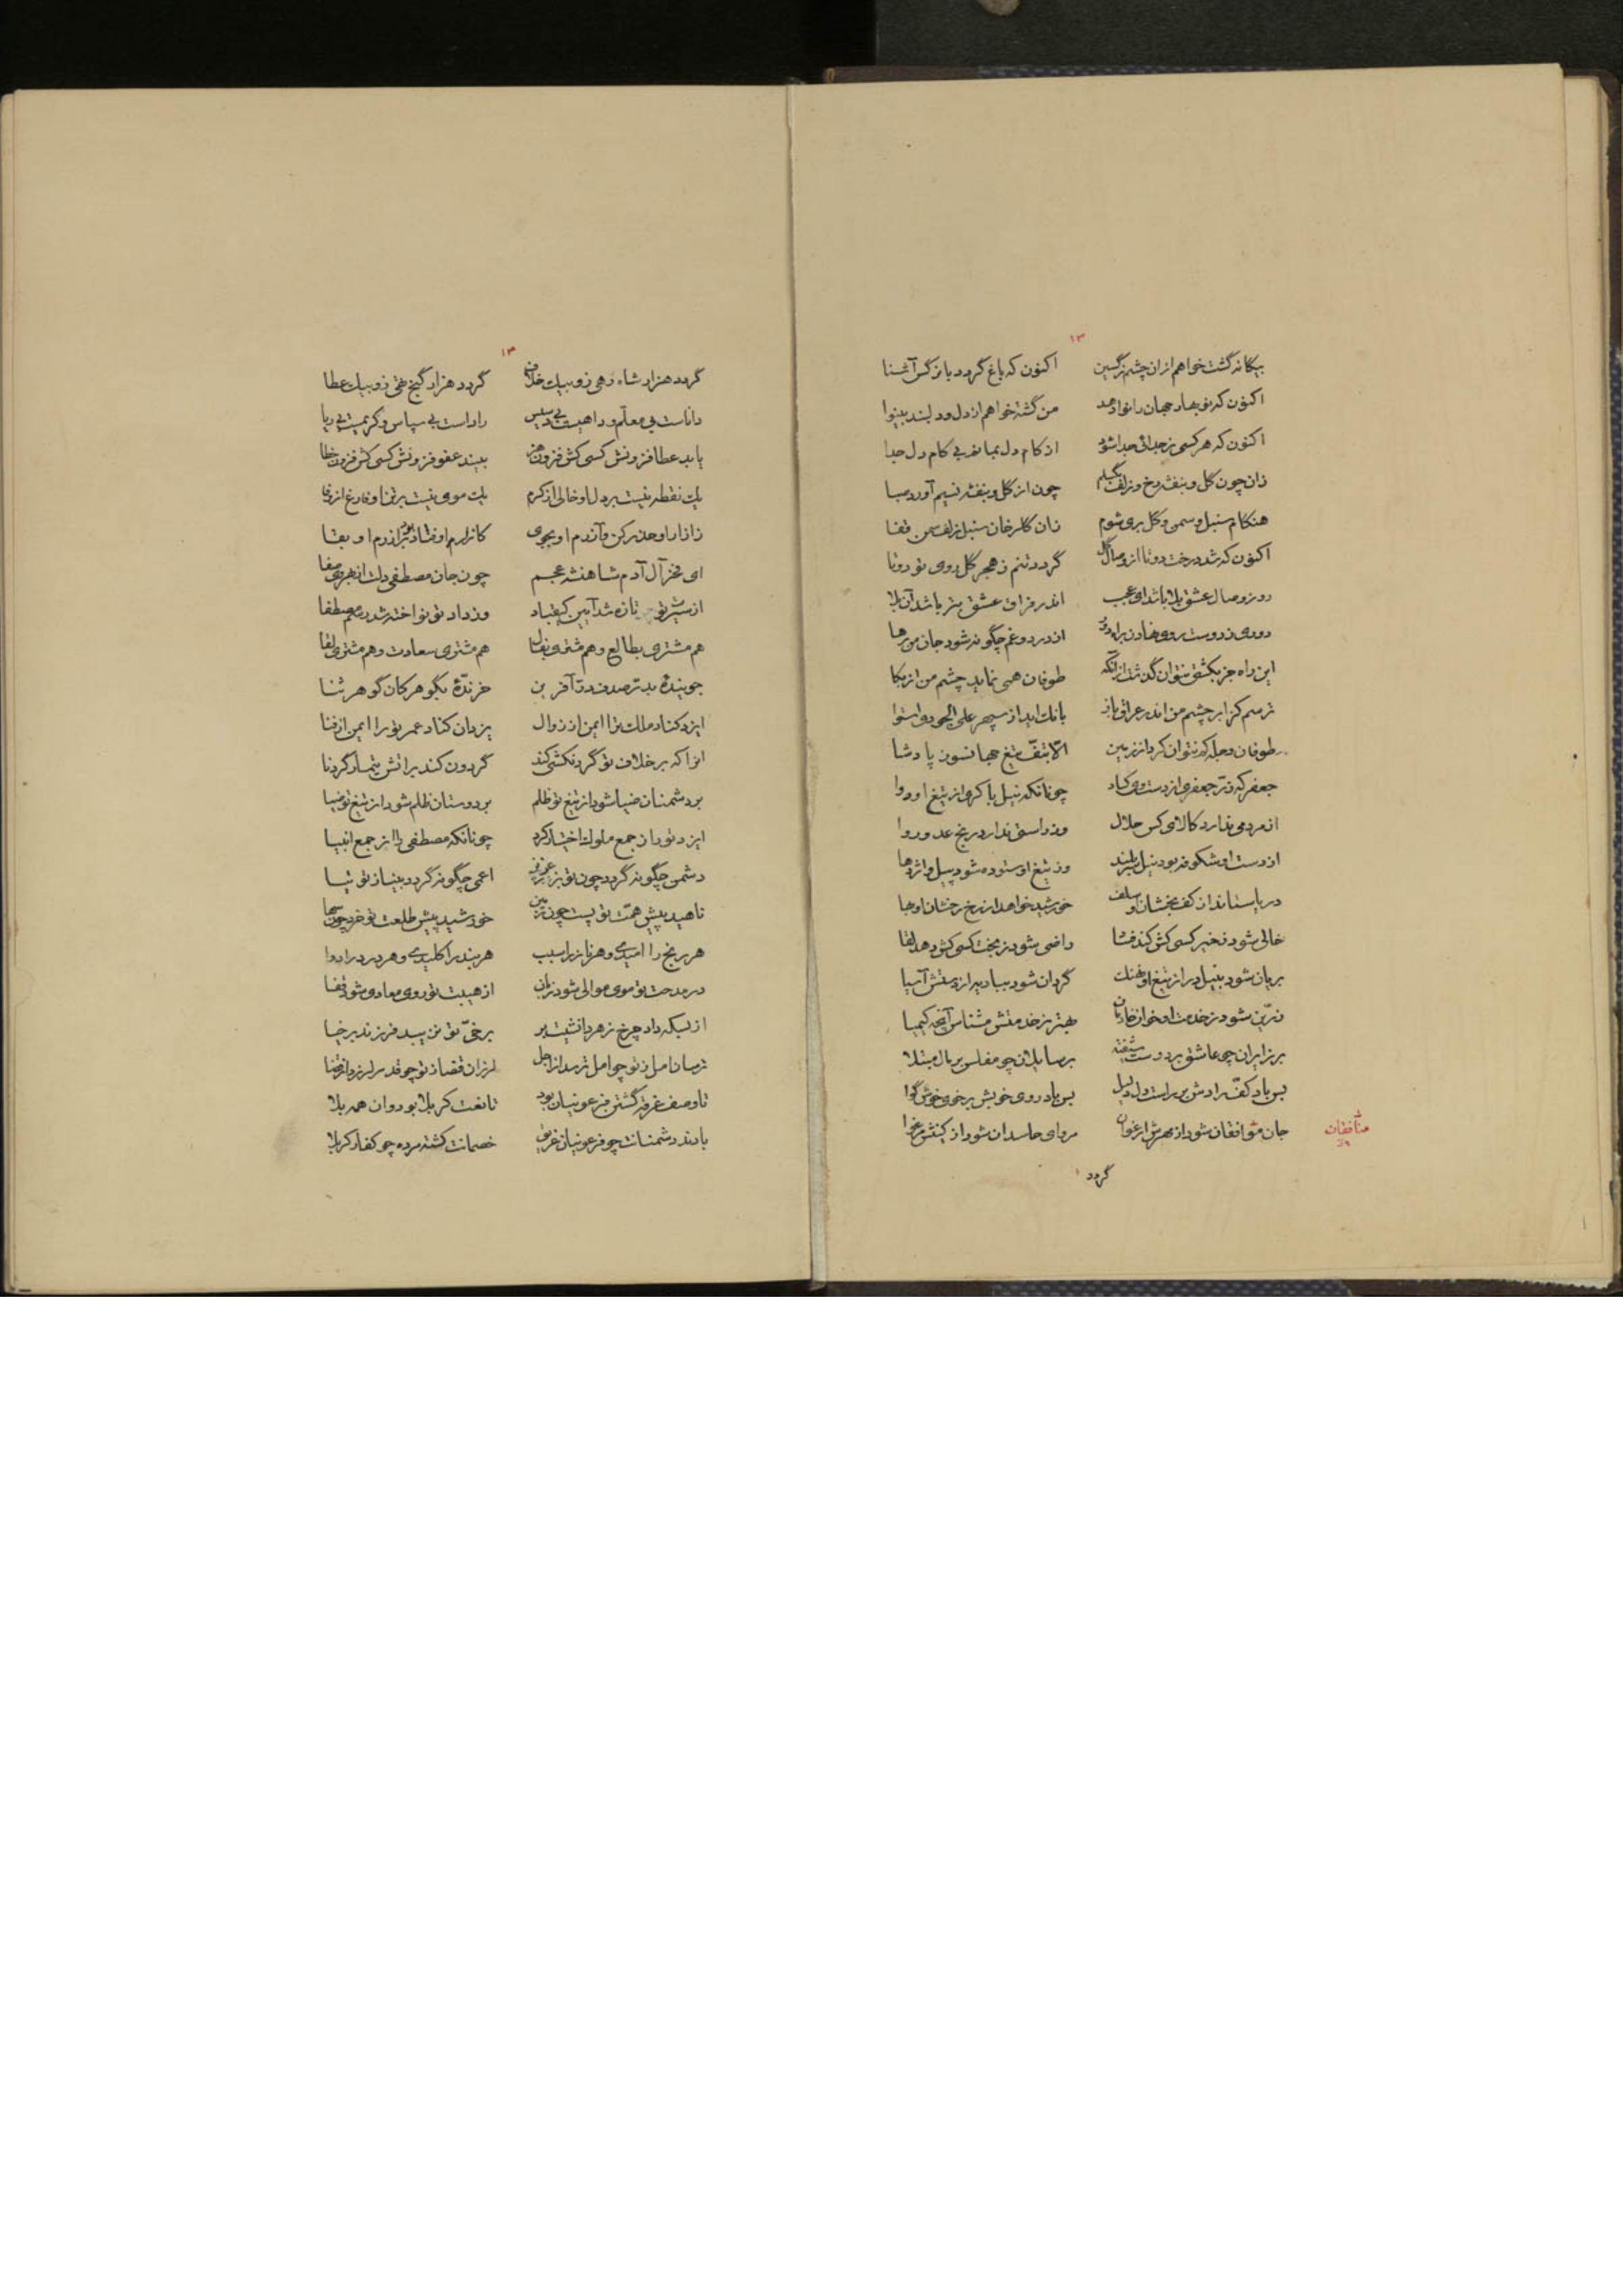 ۱۳
بیکانه گشت خواهم ازان چشم نرگسین اکنون که باغ گردد با نرگس آشنا
اکنون که نوبهار جهان را نوا دهد من گشته خواهم از دل و دلبند بینوا
اکنون که هر کسی ز جدائی جدا شود از کام دل بمانم بی کام دل جدا
زان چون گل و بنفشه رخ و زلف بگسلم چون از گل و بنفشه نسیم آورد صبا
هنکام سنبل و سمن و گل بری شوم زان کلرخان سنبل زلف سمن قفا
اکنون که شد درخت دوتا از وصال گل گردد تنم ز هجر گل روی تو دوتا
روز وصال عشق بلا باشد ای عجب اندر فراق عشق بتر باشد آن بلا
دوری ز دوست روی نهادن براه دور اندر درد و غم چگونه شود جان من رها
این راه جز بکشتی نتوان گذشت ازآنکه طوفان همی نماید چشم من از بکا
ترسم کز ابر چشم من اندر عراق باز بانک آید از سپهر علی الجودی استوا
طوفان دجله که نتوان کرد از زمین الّا بتفّ تیغ جهانسوز پادشا
جعفر که زرّ جعفری از دست وی کساد چونانکه نیل با کرمی از تیغ او روا
از مردمی ندارد کالای کس حلال وز راستی ندارد رنج عدو روا
از دست او شکوفه بود نیل بلند وز تیغ او ستوده شود پیل و اژدها
دریا ستاند از کف بخشان او سلف خورشید خواهد از رخ رخشان او جبا
خالی شود ز خیر کسی کش کند فشا راضی شود ز بخت کسی کش دهد لقا
بریان شود بنیل در از تیغ او نهنک گردان شود ببادیه از دستش آسیا
زرّین شود ز خدمت او خوان خادمان بهتر ز خدمتش مشناس آنچه کیمیا
بر زایران چو عاشق بر دوست شیفته بر سایلان چو مفلس بر مال مبتلا
بس باد کفّ رادش بر راست دل دلیل بس باد روی خوبش بر خوی خوش گوا
جان موافقان شود از مهرش ارغوان مروای حاسدان شود از کینش مرغوا
منافقان
گردد
۱۳
گردد هزار شاه رهی زو بیک خلاف گردد هزار گنج تهی زو بیک عطا
داناست بی معلّم و راهست بی سپس راد است بی سپاس و کریمست بی ریا
یابد عطا فزونش کسی کش فزون هنر بیند عفو فزونش کسی کش فزون خطا
یک نقطه نیست بر دل او خالی از کرم یک موی نیست بر تن او فارغ از وفا
زازار او حذر کن و آزرم او بجوی کازارم او فنا بود آزرم او بقا
ای فخر آل آدم شاهنشه عجم چون جان مصطفی دلت از هر بدی صفا
از سیرت تو تازه شد آیین کیقباد وز داد تو نواخته شد رسم مصطفا
هم مشتری بطالع و هم مشتری بفال هم مشتری سعادت و هم مشتری لقا
جوینده بدتر صدف در آفرین خرندهٔ بگوهر کان گوهر ثنا
ایزد کناد ملک ترا ایمن از زوال یزدان کناد عمر تو را ایمن از فنا
انرا که بر خلاف تو گردنکشی کند گردون کند بر آتش تیمار گردنا
بر دشمنان ضیا شود از تیغ تو ظلم بر دوستان ظلم شود از تیغ تو ضیا
ایزد تو را ز جمع ملوک اختیار کرد چونانکه مصطفی را از جمع انبیا
دشمن چگونه گردد چون تو بز عزیز اعمی چگونه گردد بینا ز توتیا
ناهید پیش همّت تو پست چون زمین خورشید پیش طلعت تو خرد چون سها
هر رنج را امیدی و هر ناز را سبب هر بند را کلیدی و هر درد را دوا
در مدحت تو موی موالی شود زبان از هیبت تو روی معادی شود قفا
از بسکه داد چرخ ز هر دانشیت بر برخیّ تو نرسید فرزند برخیا
ترسان امل ز تو چو امل ترسد از اجل لرزان قضا ز تو چو قدر لرزد از قضا
تا وصف غرقه گشتن فرعونیان بود تا نعت کربلا بود و آن همه بلا
بادند دشمنانت چو فرعونیان غریق خصمانت کشته مرده چو کفار کربلا